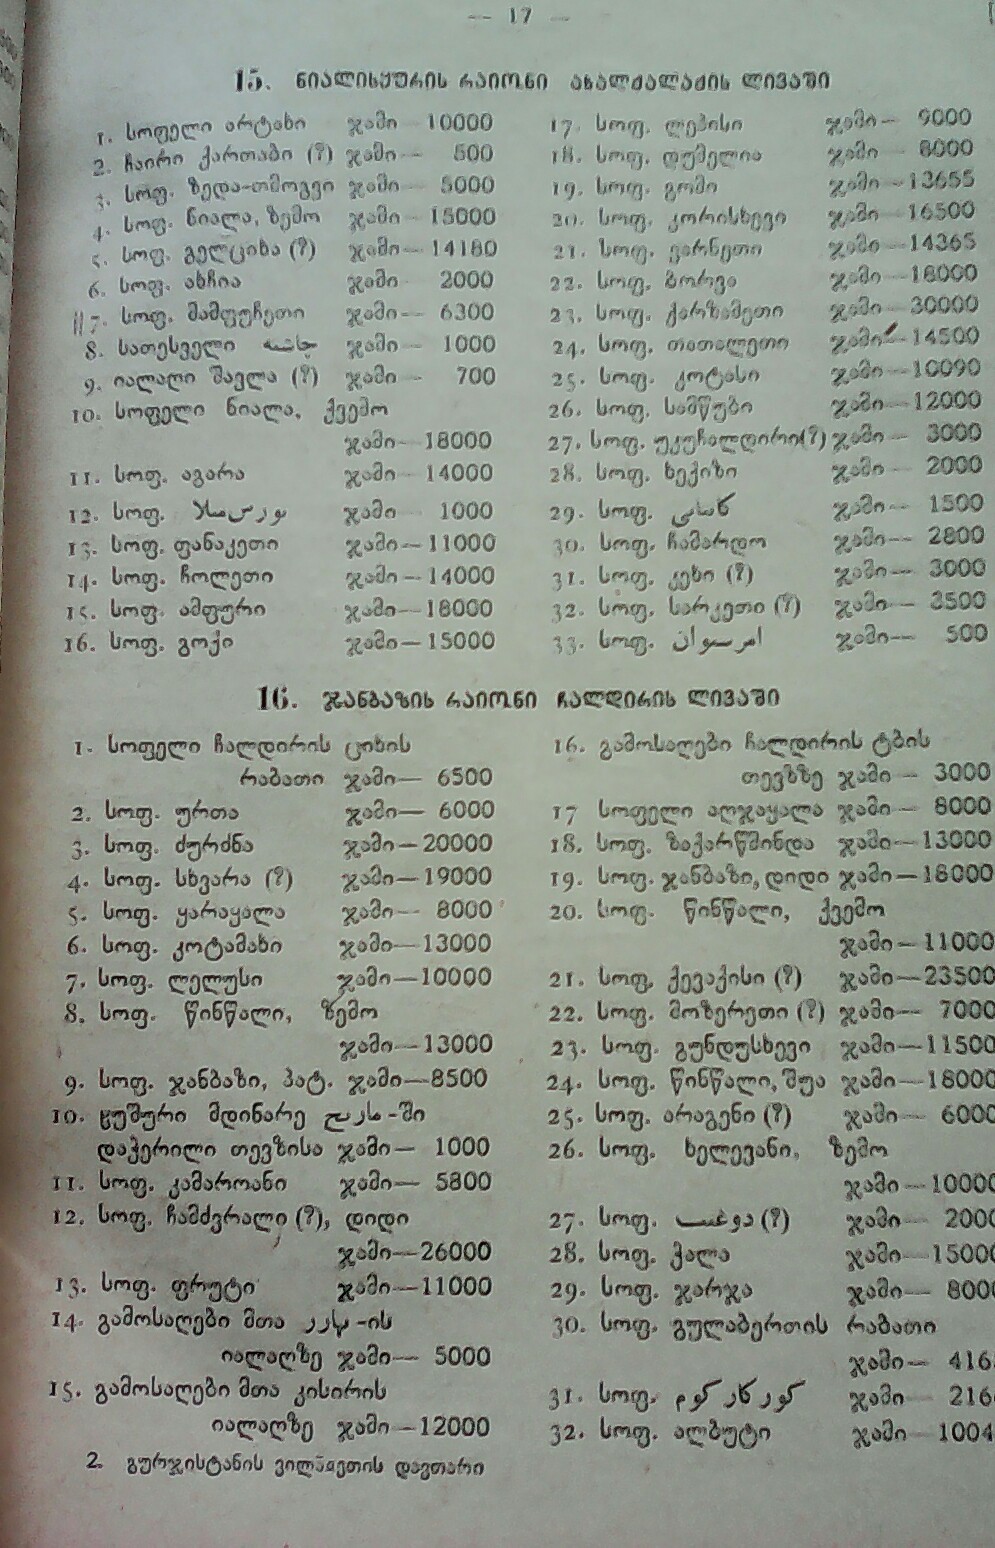 — 17 —
15. ნიალისყურის რაიონი ახალქალაქის ლივაში
1. სოფელი არტახი ჯამი — 10000
2. ჩაირი ქართაბი (?) ჯამი — 500
3. სოფ. ზედა-თმოგვი ჯამი — 5000
4. სოფ. ნიალა, ზემო ჯამი — 15000
5. სოფ. გელციხა (?) ჯამი — 14180
6. სოფ. ახჩია ჯამი 2000
7. სოფ. მამფუჩეთი ჯამი — 6300
8. სათესველი ჯამი — 1000
9. იალაღი შავლა (?) ჯამი — 700
10. სოფელი ნიალა, ქვემო
ჯამი — 18000
11. სოფ. აგარა ჯამი — 14000
12. სოფ. ჯამი 1000
13. სოფ. ფანაკეთი ჯამი — 11000
14. სოფ. ჩოლეთი ჯამი — 14000
15. სოფ. ამფური ჯამი — 18000
16. სოფ. გოქი ჯამი — 15000
17. სოფ. ლეპისი ჯამი — 9000
18. სოფ. დუმელია ჯამი — 8000
19. სოფ. გომი ჯამი — 13655
20. სოფ. კორისხევი ჯამი — 16500
21. სოფ. ვარნეთი ჯამი — 14365
22. სოფ. ბორვა ჯამი — 18000
23. სოფ. ქარზამეთი ჯამი — 30000
24. სოფ. თათალეთი ჯამი — 14500
25. სოფ. კოტასი ჯამი — 10090
26. სოფ. სამწუბი ჯამი — 12000
27. სოფ. უკუჩალდირი(?) ჯამი — 3000
28. სოფ. ხექიზი ჯამი — 2000
29. სოფ. ჯამი — 1500
30. სოფ. ჩამარდო ჯამი — 2800
31. სოფ. კეხი (?) ჯამი — 3000
32. სოფ. სარკეთი (?) ჯამი — 3500
33. სოფ. ჯამი — 500
16. ჯანბაზის რაიონი ჩალდირის ლივაში
1. სოფელი ჩალდირის ციხის
რაბათი ჯამი — 6500
2. სოფ. ურთა ჯამი — 6000
3. სოფ. ძურძნა ჯამი — 20000
4. სოფ. სხვარა (?) ჯამი — 19000
5. სოფ. ყარაყალა ჯამი — 8000
6. სოფ. კოტამახი ჯამი — 13000
7. სოფ. ლელუსი ჯამი — 10000
8. სოფ. წინწალი, ზემო
ჯამი — 13000
9. სოფ. ჯანბაზი, პატ. ჯამი — 8500
10. წუშური მდინარე -ში
დაჭერილი თევზისა ჯამი — 1000
11. სოფ. კამაროანი ჯამი — 5800
12. სოფ. ჩამძვრალი (?), დიდი
ჯამი — 26000
13. სოფ. ფრუტი ჯამი — 11000
14. გამოსაღები მთა -ის
იალაღზე ჯამი — 5000
15. გამოსაღები მთა კისირის
იალაღზე ჯამი — 12000
16. გამოსაღები ჩალდირის ტბის
თევზზე ჯამი — 3000
17 სოფელი აღჯაყალა ჯამი — 8000
18. სოფ. ზაქარწმინდა ჯამი — 13000
19. სოფ. ჯანბაზი, დიდი ჯამი — 18000
20. სოფ. წინწალი, ქვემო
ჯამი — 11000
21. სოფ. ქევაქისი (?) ჯამი — 23500
22. სოფ. მოზერეთი (?) ჯამი — 7000
23. სოფ. გუნდუსხევი ჯამი — 11500
24. სოფ. წინწალი, შუა ჯამი — 18000
25. სოფ. არაგენი (?) ჯამი — 6000
26. სოფ. ხელევანი, ზემო
ჯამი — 10000
27. სოფ. (?) ჯამი — 2000
28. სოფ. ჭალა ჯამი — 15000
29. სოფ. ჯარჯა ჯამი — 8000
30. სოფ. გულაბერთის რაბათი
ჯამი — 416
31. სოფ. ჯამი — 216
32. სოფ. ალბუტი ჯამი — 1004
2. გურჯისტანის ვილაიეთის დავთარი